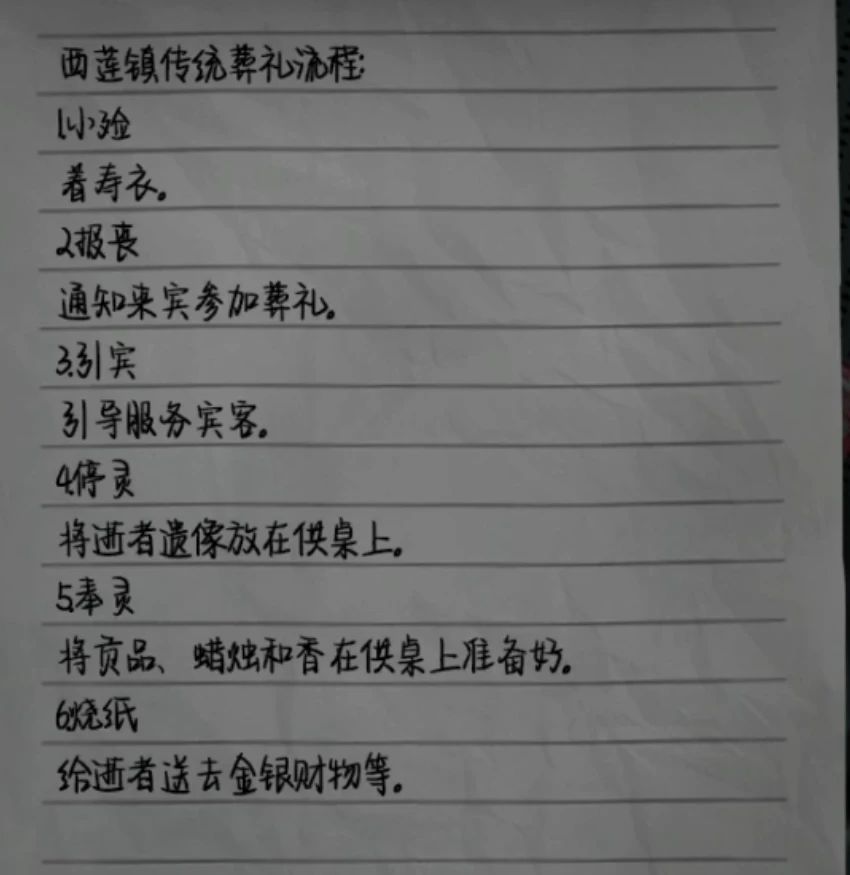 西莲镇传统葬礼流程:
1.小殓
着寿衣。
2.报丧
通知来宾参加葬礼。
3.引宾
引导服务宾客。
4.停灵
将逝者遗像放在供桌上。
5.奉灵
将贡品、蜡烛和香在供桌上准备好。
6.烧纸
给逝者送去金银财物等。